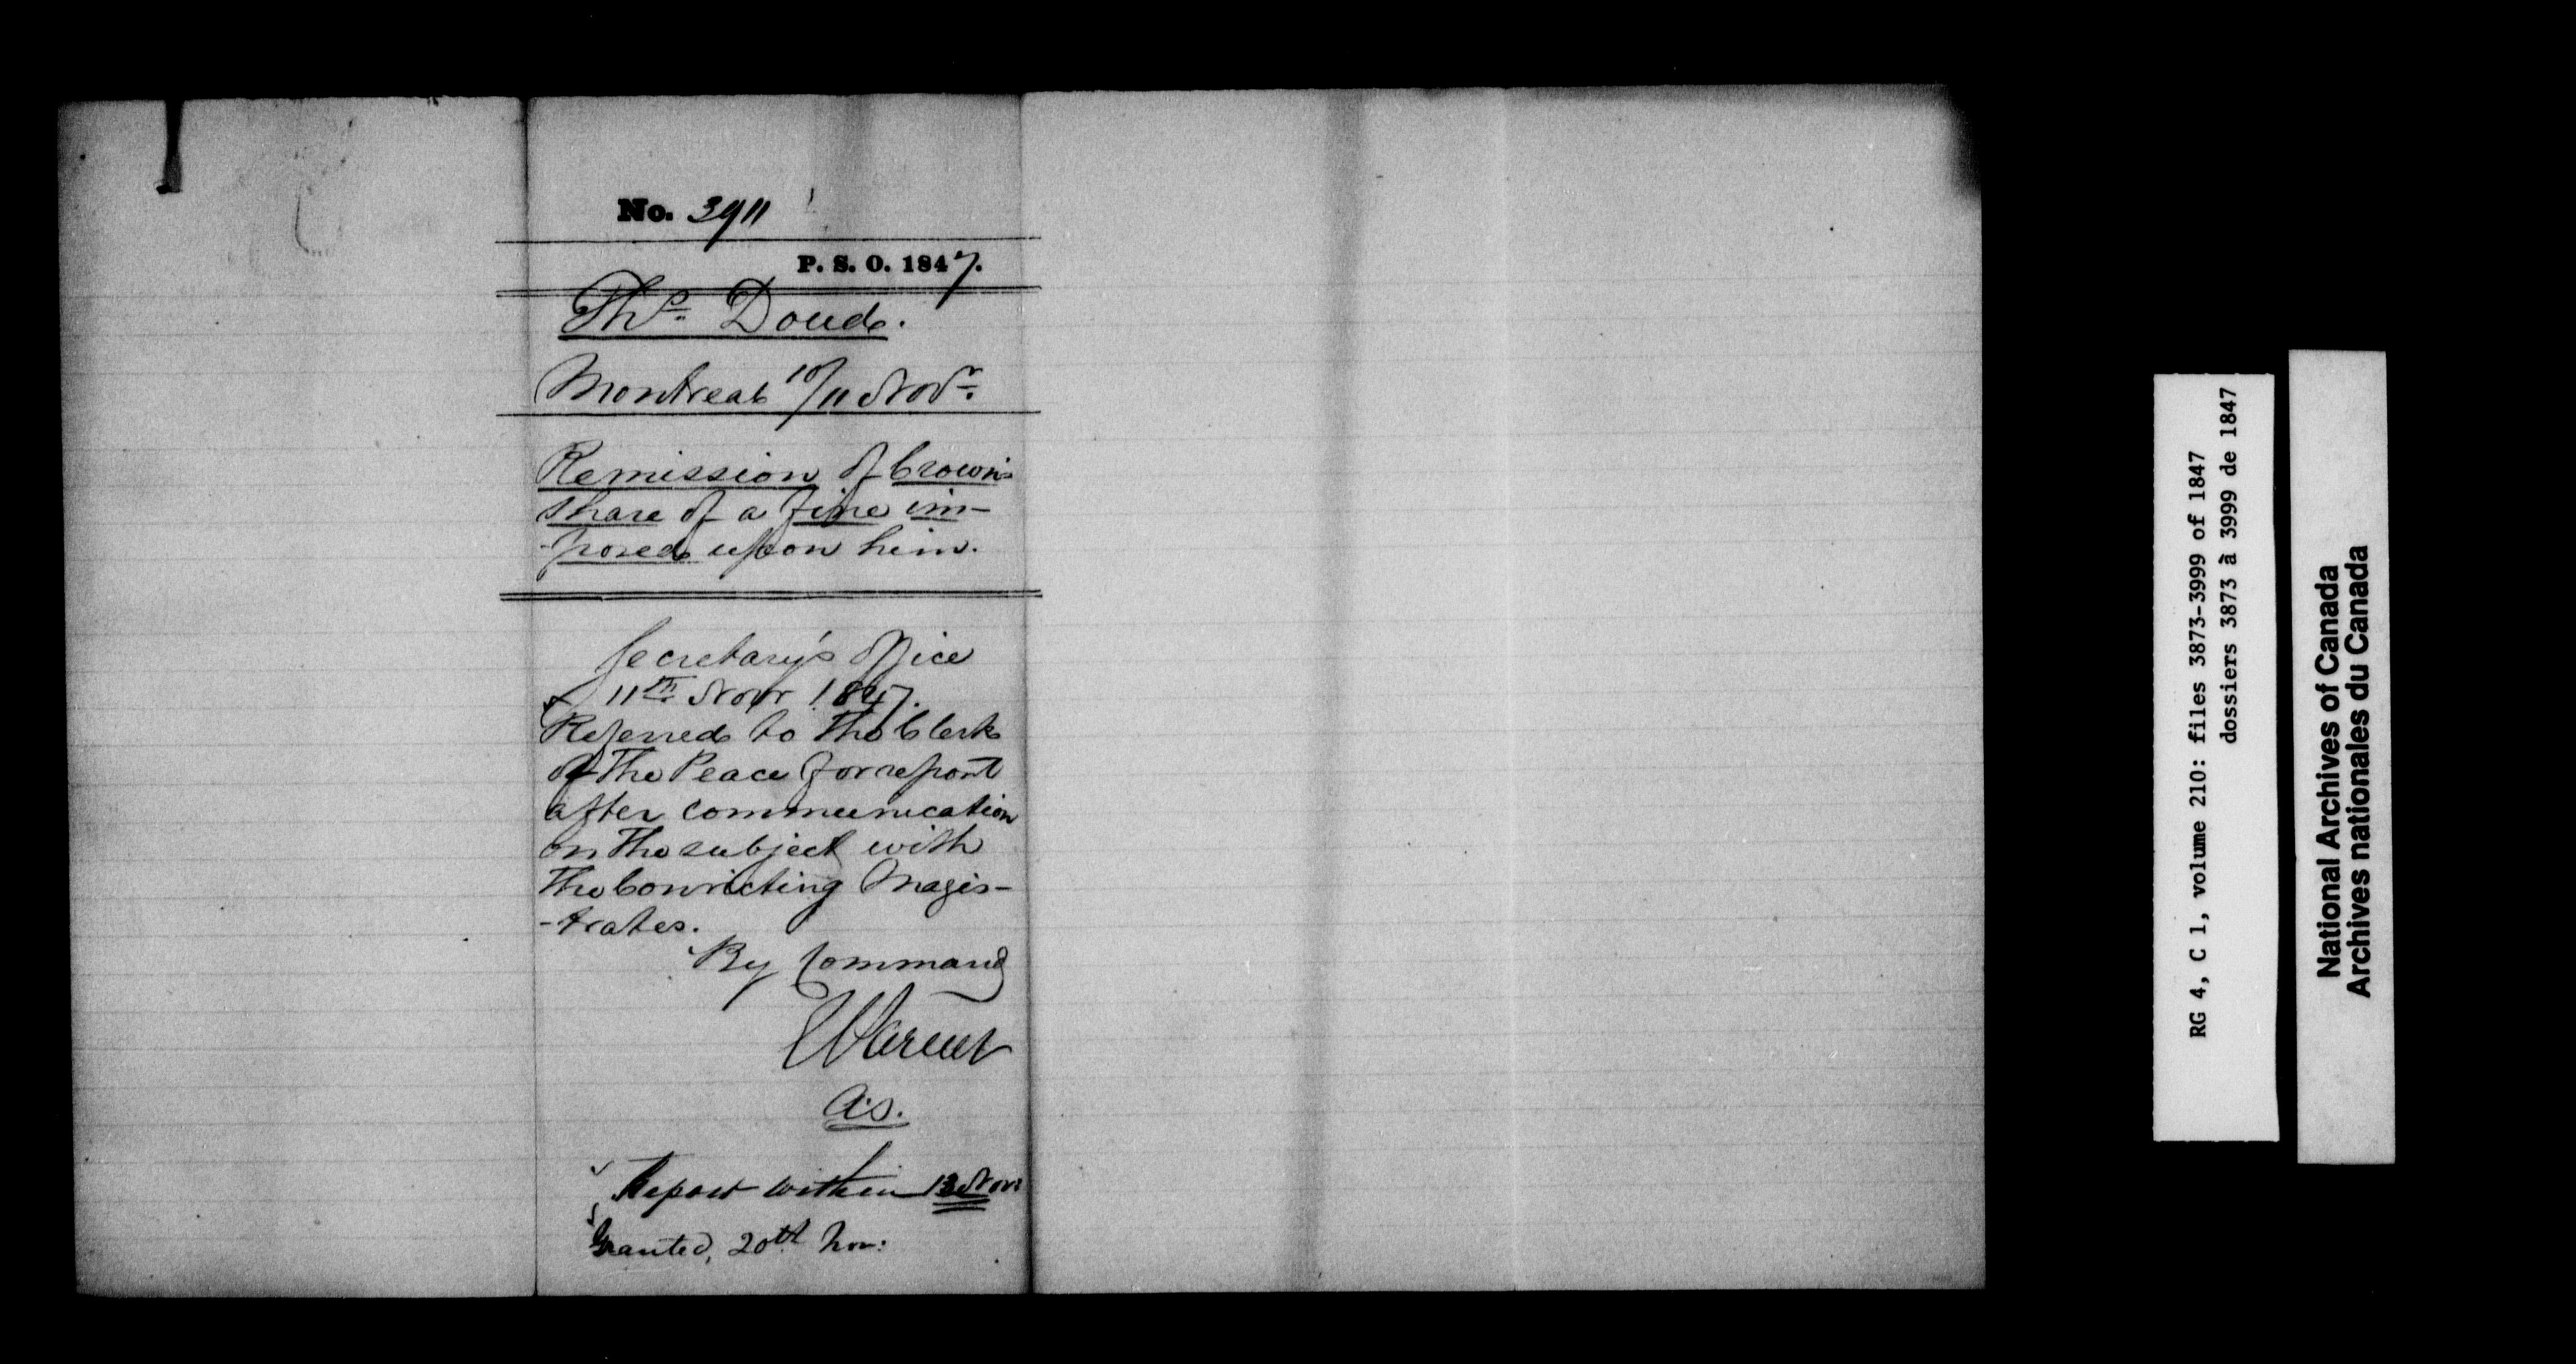 No. 3911
P. S. O. 1847.
Thos. Doud.
Montreal 10/11 Novr.
Remission of Crown's
share of a fine im-
-posed upon him.
Secretary's Office
11th Novr 1847.
Referred to the Clerk
of the Peace for report
after communication
on the subject with
the Convicting Magis-
-trates.
By Command
E Parent
A.S.
Report within 13 Nov:
Granted, 20th Nov:
RG 4, C 1, volume 210: files 3873-3999 of 1847
dossiers 3873 à 3999 de 1847
National Archives of Canada
Archives nationales du Canada